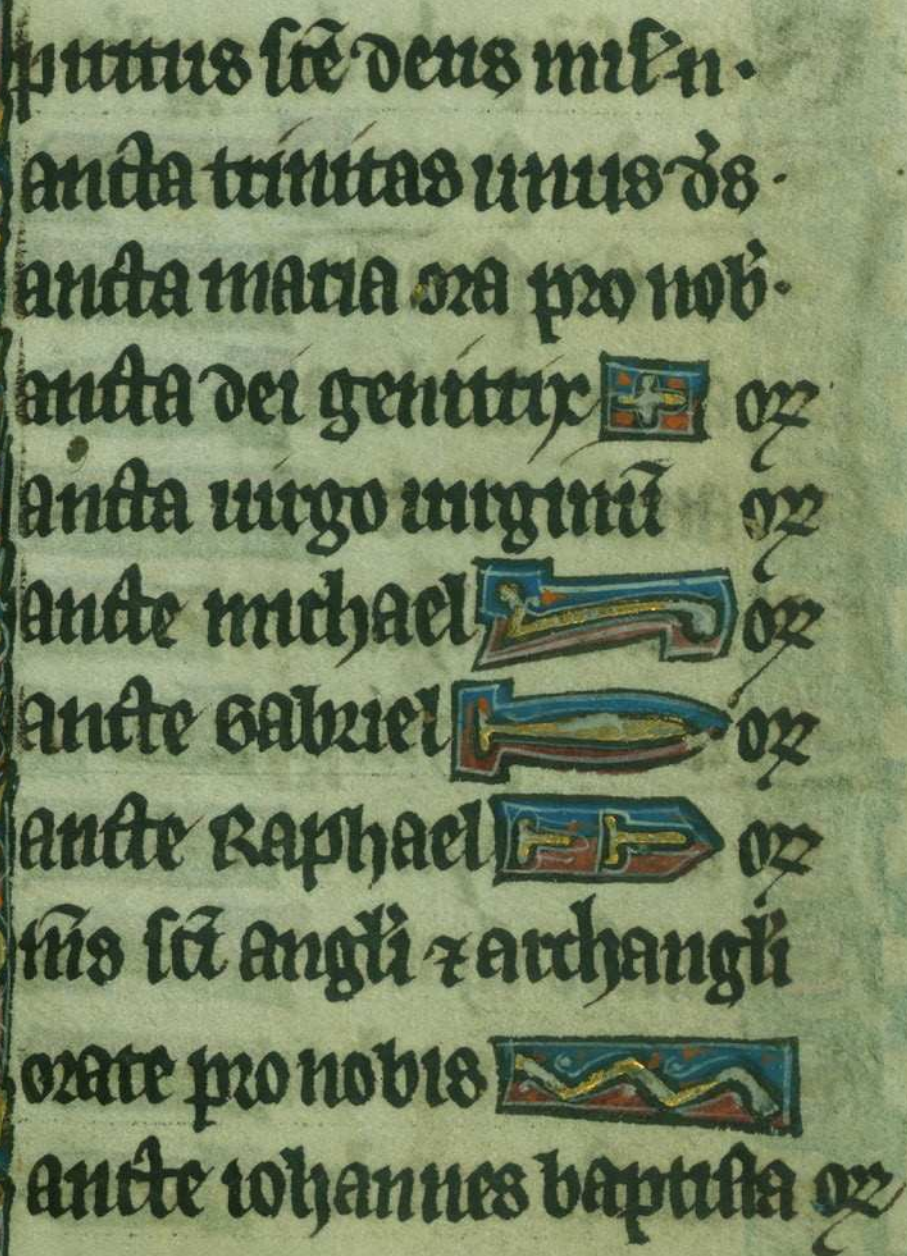 piritus sc̄e deus mis̄ n·
ancta trinitas unus d̄s·
ancta maria ora pro nob̄·
ancta dei genitrix oꝝ
ancta uirgo uirginū oꝝ
ancte michael oꝝ
ancte Gabriel oꝝ
ancte Raphael oꝝ
mn̄s sc̄i angl̄i ⁊ archangl̄i
orate pro nobis
ancte iohannes baptista oꝝ